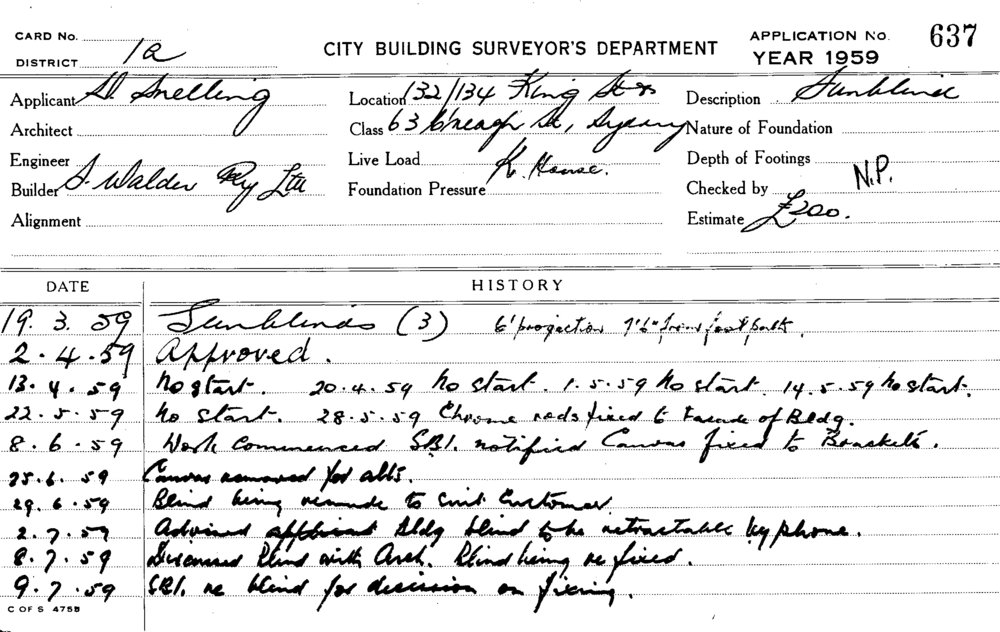 CARD No.
DISTRICT 1a
CITY BUILDING SURVEYOR'S DEPARTMENT
APPLICATION No. 637
YEAR 1959
Applicant S. Snelling
Location 132/134 King St
Description Sunblind
Architect
Class 63 St, Sydney
Nature of Foundation
Engineer
Live Load K. House.
Depth of Footings
Builder S. Walder Pty Ltd
Foundation Pressure
Checked by N.P.
Alignment
Estimate £200.
DATE HISTORY
19. 3. 59 Sunblinds (3) 6' projection 7'6" from footpath.
2. 4. 59 Approved.
13. 4. 59 No start. 20.4.59 No start. 1.5.59 No start. 14.5.59 No start.
22. 5. 59 No start. 28.5.59 Chrome rods fixed to Facade of Bldg.
8. 6. 59 Work commenced S.B.I. notified Canvas fixed to Brackets.
25. 6. 59 Canvas removed for alts.
29. 6. 59 Blind being remade to suit Customer.
2. 7. 59 Advised applicant Bldg blind to be retractable by phone.
8. 7. 59 Discussed Blind with Arch. Blind being re fixed.
9. 7. 59 S.B.I. re blind for decision on fixing.
C OF S 4755